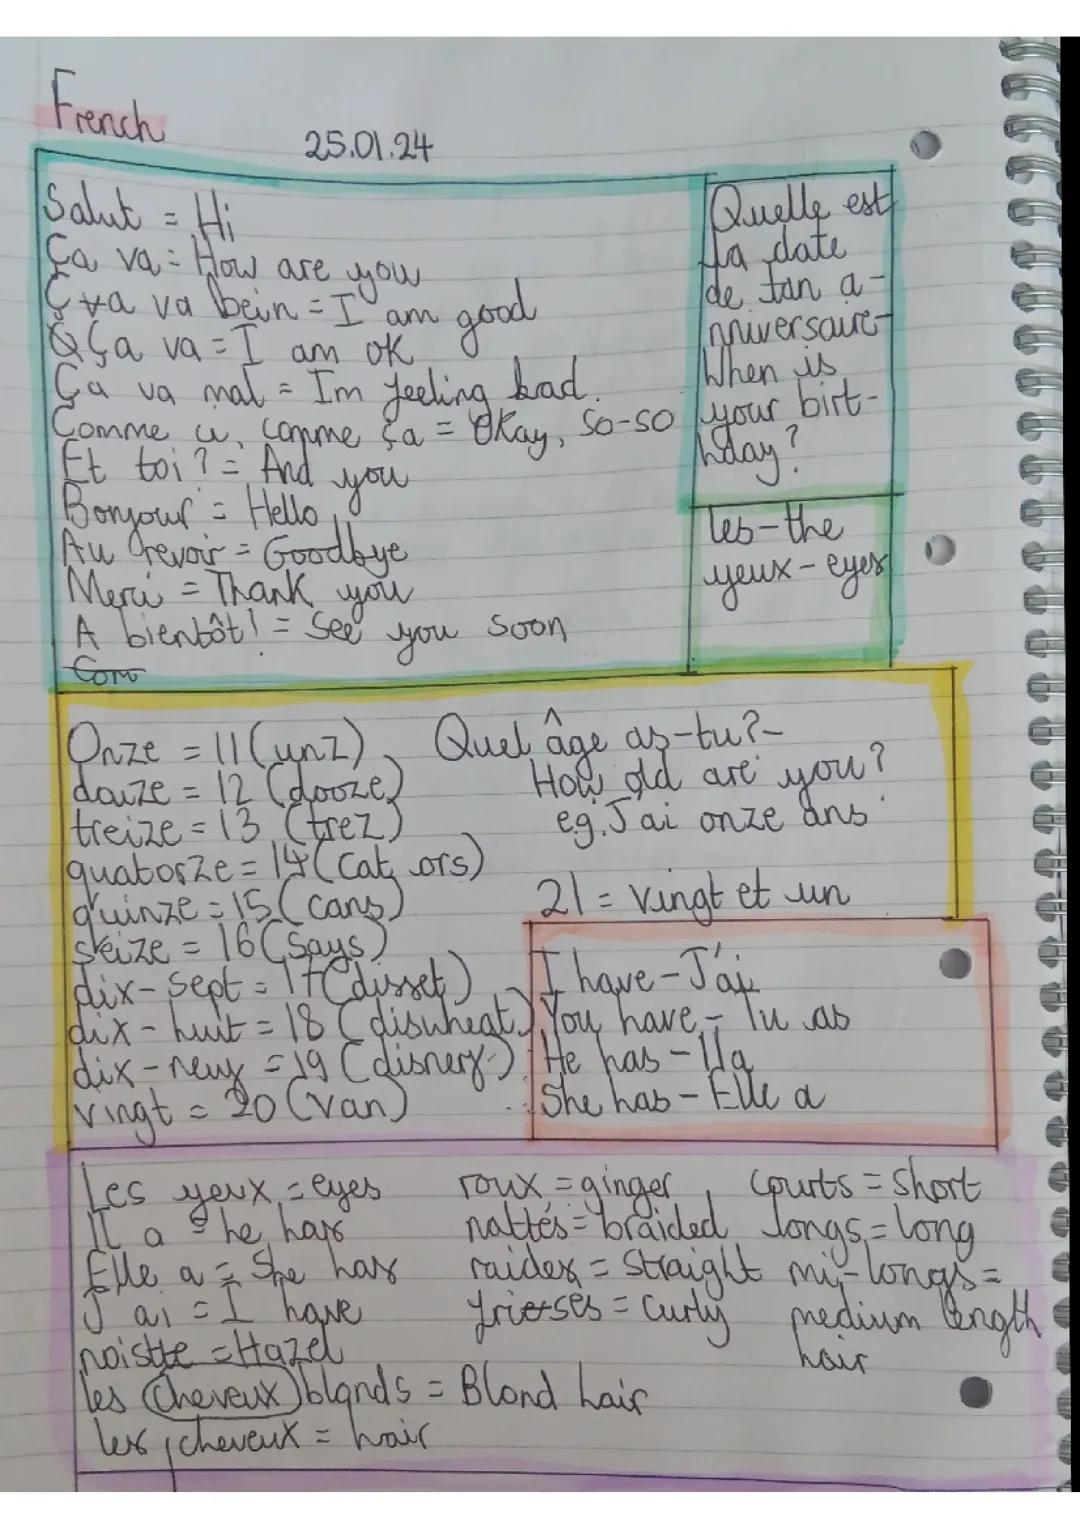 French
25.01.24
Salut = Hi
Ça va = How are you
Ç va bein = I am good
Ça va = I am ok
Ça va mal = Im feeling bad.
Comme ci, comme ça = Okay, so-so
Et toi? = And you
Bonjour = Hello
Au revoir = Goodbye
Merci = Thank you
A bientôt! = See you soon
Com
Quelle est
la date
de tan a-
nniversaire-
When is
your birt-
hday?
les - the
yeux - eyes
Onze = 11 (unz)
douze = 12 (dooze)
treize = 13 (trez)
quatorze = 14 (cat ors)
quinze = 15 (cans)
seize = 16 (says)
dix-sept = 17 (disset)
dix-huit = 18 (diswheat)
dix-neuf = 19 (disnerf)
vingt = 20 (van)
Quel âge as-tu? -
How old are you?
eg. J'ai onze ans
21 = vingt et un
I have - J'ai
You have - Tu as
He has - Il a
She has - Elle a
Les yeux = eyes
Il a = he has
Elle a = She has
J'ai = I have
noistte = Hazel
les cheveux blonds = Blond hair
les cheveux = hair
roux = ginger
nattés = braided
raides = straight
frisses = curly
courts = short
longs = long
mi-longs =
medium length
hair